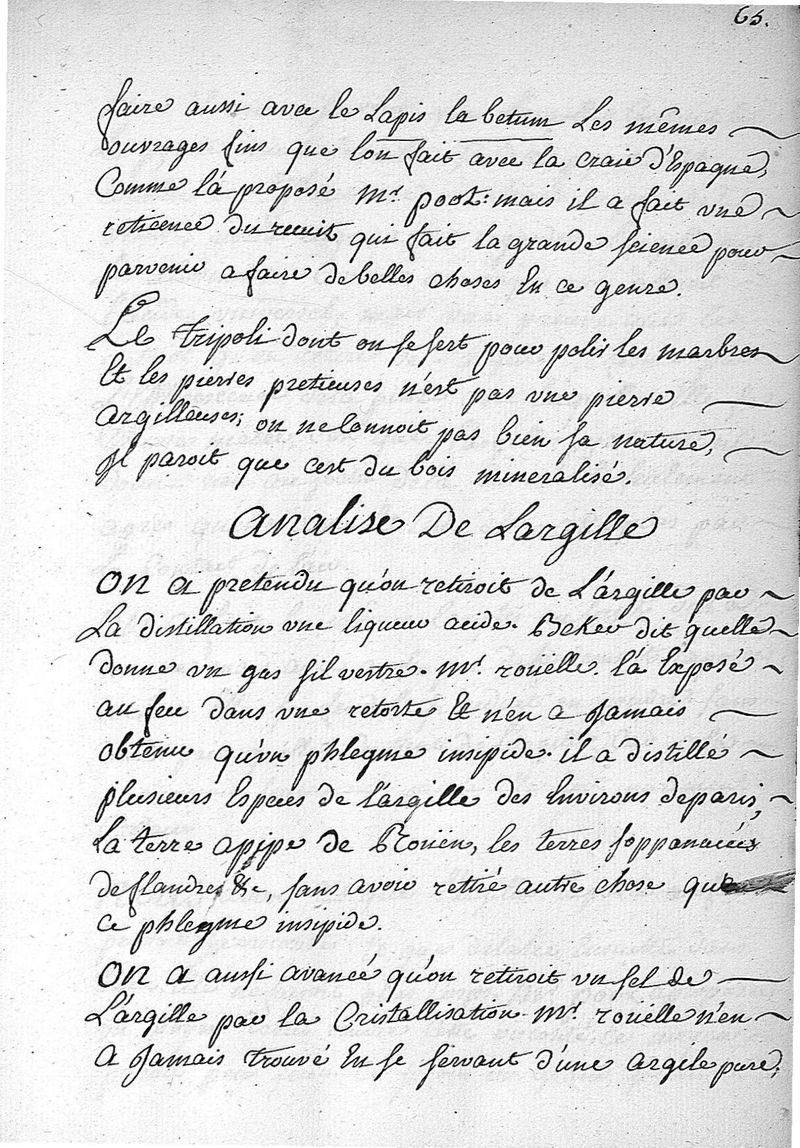 65.
faire aussi avec le Lapis la betum Les mêmes
ouvrages fins que l'on fait avec la craie d'Espagne,
Comme l'a proposé Mr. poot: mais il a fait une
reticence du recuit qui fait la grande science pour
parvenir a faire de belles choses En ce genre.
Le Tripoli dont on se sert pour polir les marbres
Et les pierres pretieuses n'est pas une pierre
argilleuses; on ne connoit pas bien sa nature,
Il paroit que c'est du bois mineralisé.
Analise De Largille
On a pretendu qu'on retiroit de L'argille par
La distillation une liqueur acide. Beker dit quelle
donne un gas silvestre. Mr. rouëlle l'a Exposé
au feu dans une retorte Et n'en a Jamais
obtenu qu'un phlegme insipide. il a distillé
plusieurs Especes de l'argille des Environs de paris,
La terre a pipe de Roüen, les terres
de flandres &c, sans avoir retiré autre chose que
ce phlegme insipide.
On a aussi avancé qu'on retiroit un sel de
L'argille par la Cristallisation. Mr. rouëlle n'en
a Jamais trouvé En se servant d'une argile pure,